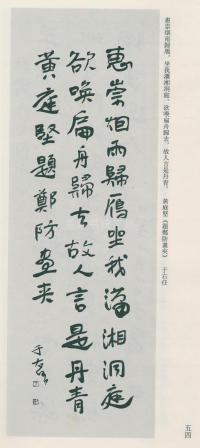 惠崇烟雨歸鴈，坐我瀟湘洞庭。欲喚扁舟歸去，故人言是丹青。　黄庭堅《題鄭防畫夾》　于右任
惠崇烟雨歸鴈坐我瀟湘洞庭
欲喚扁舟歸去故人言是丹青
黃庭堅題鄭防畫夾
于右任
五四